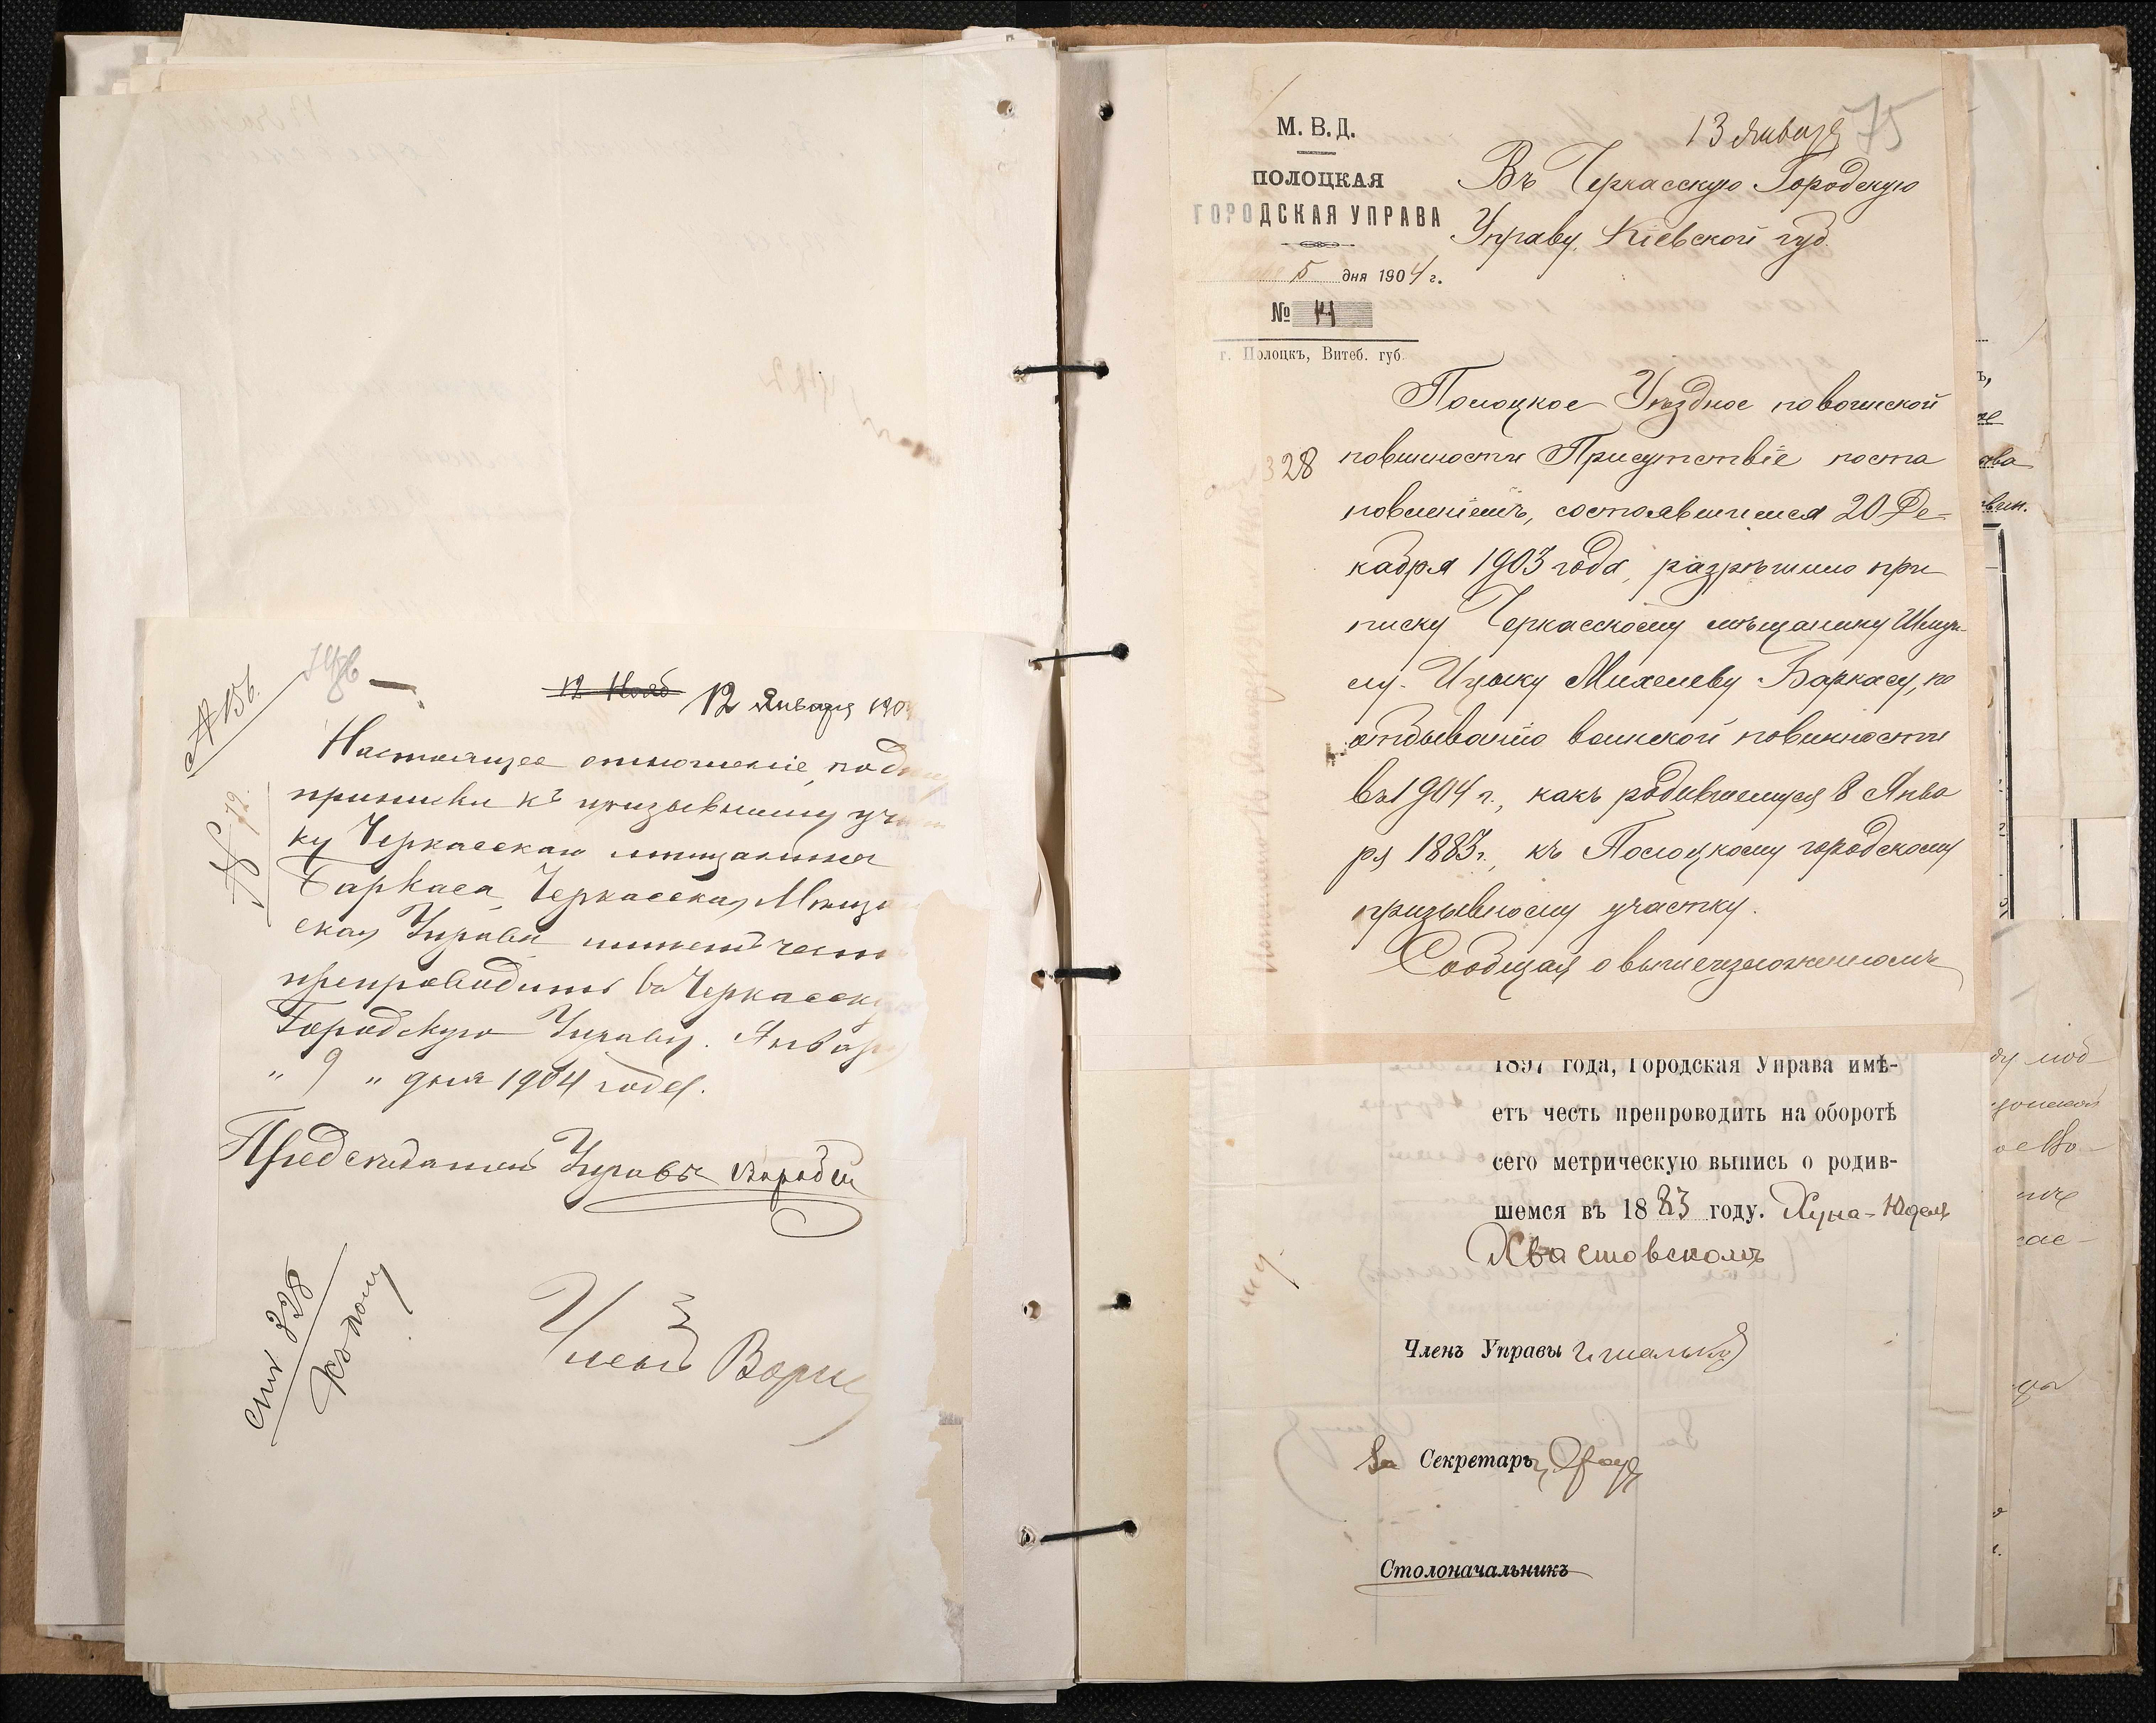 № 156.
№ 72.
12 Нояб 12 Января 190
Настоящее отношение, под
приписки къ призывному уча
ку Черкасскаго мѣщанина
Баркаса, Черкасская Мѣща
ская Управа имѣетъ чест
препроводить въ Черкасску
Городскую Управу. Январ
" 9 " дня 1904 года.
Предсѣдатель Управы
328
Членъ
75
13 Января
М. В. Д.
ПОЛОЦКАЯ
ГОРОДСКАЯ УПРАВА
5 дня 1904 г.
№ 14
г. Полоцкъ, Витеб. губ.
Въ Черкасскую Городскую
Управу, Кіевской губ.
Полоцкое Уѣздное по воинской
328
повинности Присутствіе поста
новленіемъ, состоявшимся 20 Де-
кабря 1903 года, разрѣшило при
писку Черкасскому мѣщанину Шмуи-
лу-Ицыку Михелеву Баркасу, по
отбыванію воинской повинности
въ 1904 г., какъ родившемуся 8 Янва
ря 1883 г., къ Полоцкому городскому
призывному участку.
Сообщая о вышеизложенномъ
1897 года, Городская Управа имѣ-
етъ честь препроводить на оборотѣ
сего метрическую выпись о родив-
шемся въ 1883 году. Хуна-Юделѣ
Хвастовскомъ
Членъ Управы
За Секретарь
Столоначальникъ